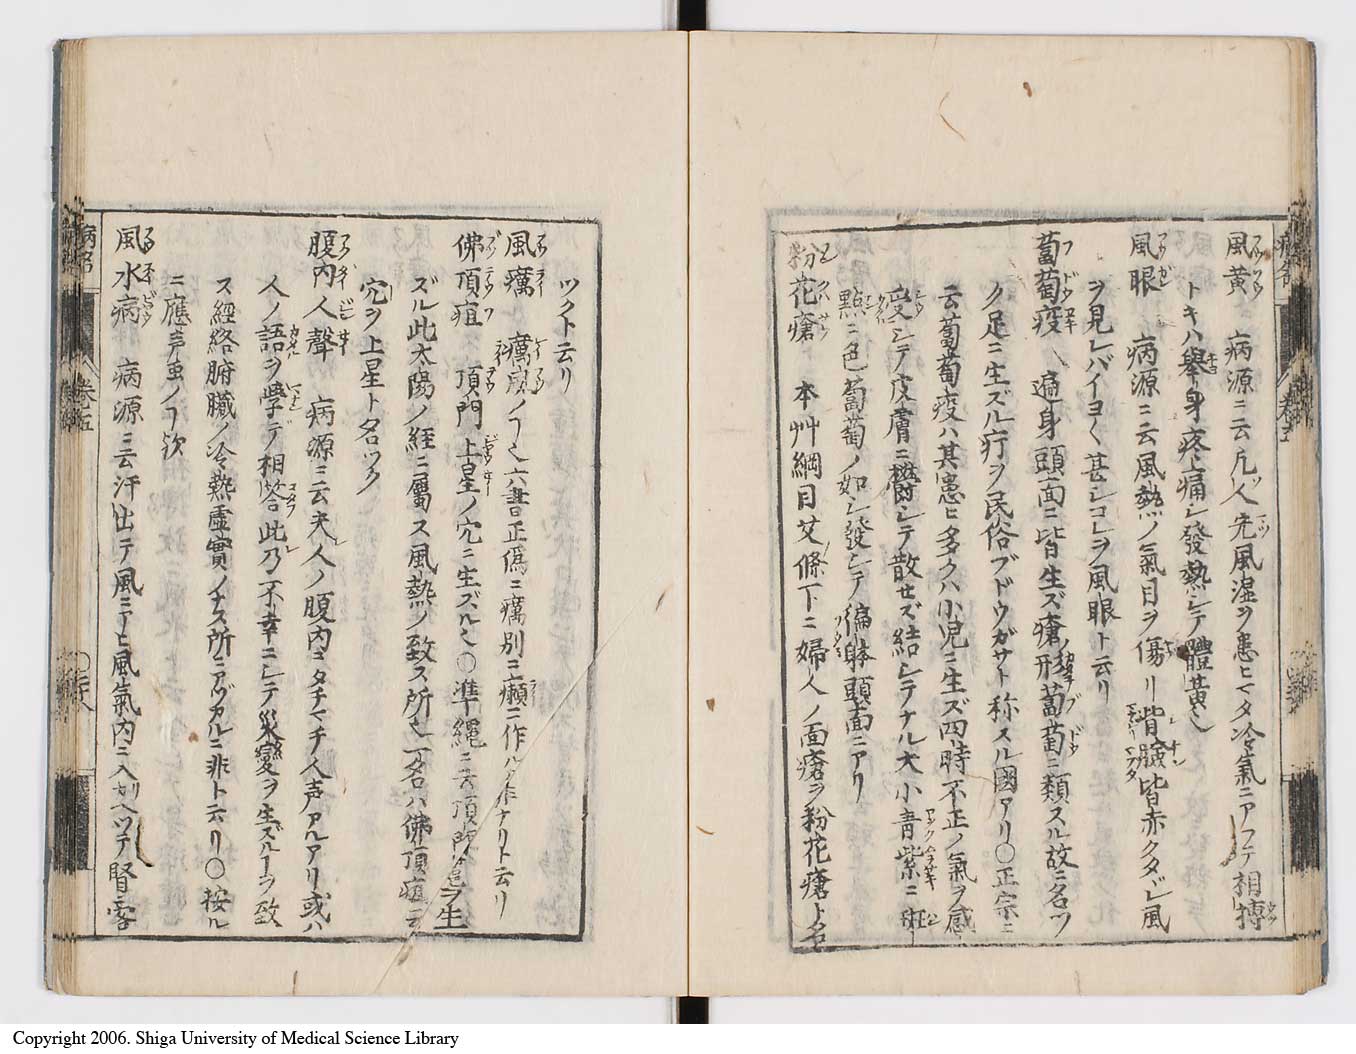 風黄 病源ニ云凡人先風湿ヲ患ヒマタ冷氣ニアフテ相搏
トキハ擧身疼痛シ發熱シテ體黄
風眼 病源ニ云風熱ノ氣目ヲ傷リ眥瞼皆赤クタヾレ風
ヲ見レバイヨ〱甚シコレヲ風眼ト云リ
葡萄疫 遍身頭面ニ皆生ズ瘡形葡萄ニ類スル故ニ名ツ
ク足ニ生ズル疔ヲ民俗ブドウガサト称スル國アリ〇正宗ニ
云葡萄疫ハ其患ヒ多クハ小児ニ生ズ四時不正ノ氣ヲ感
受シテ皮膚ニ欝シテ散セズ結シテナル大小青紫ニ斑
點ニ色葡萄ノ如シ發シテ徧躰頭面ニアリ
粉花瘡 本艸綱目艾條下ニ婦人ノ面瘡ヲ粉花瘡ト名
ツクト云リ
風癘 癘風ノ 六書正僞ニ癘別ニ癩ニ作ル ナリト云リ
佛頂疽 頂門上星ノ穴ニ生ズル 〇準縄ニ云頂 ヲ生
ズル此太陽ノ經ニ屬ス風熱ノ致ス所 一名ハ佛頂疽
穴ヲ上星ト名ツク
腹内人聲 病源ニ云夫人ノ腹内ニタチマチ人声アルアリ或ハ
人ノ語ヲ學デ相答此乃不幸ニシテ災變ヲ生ズル ヲ致
ス經絡腑臓ノ冷熱虚實ノナス所ニアヅカルニ非ト云リ〇按ル
ニ應声虫ノ 欤
風水病 病源ニ云汗出テ風ニアヒ風氣内ニ入 腎
病名
巻五
Copyright 2006. Shiga University of Medical Science Library